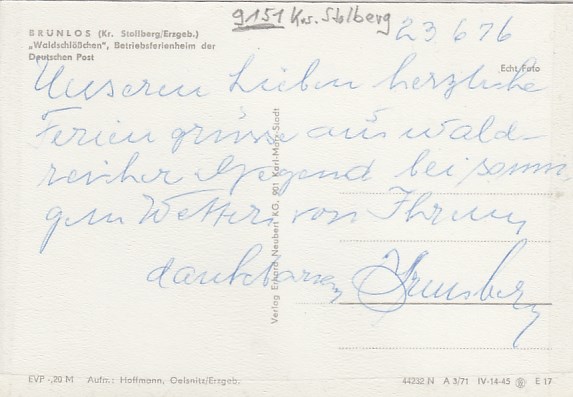 9151 Krs. Stolberg
BRUNLOS (Kr. Stollberg/Erzgeb.)
„Waldschlößchen", Betriebsferienheim der
Deutschen Post
23 6 76
Echt Foto
Unseren Lieben herzliche
Feriengrüsse aus wald-
reicher Gegend bei sonni-
gem Wetter von Ihrem
dankbaren
Verlag Erhard Neubert KG, 901 Karl-Marx-Stadt
EVP -,20 M Aufn.: Hoffmann, Oelsnitz/Erzgeb.
44232 N A 3/71 IV-14-45 E 17